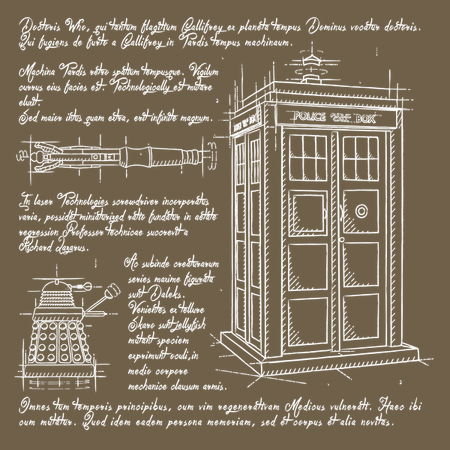 Doctoris Who, qui tantum flagitium Gallifrey ex planeta tempus Dominus vocatur doctoris.
Qui fugiens de furto a Gallifrey in Tardis tempus machinam.
Machina Tardis retro spatium tempusque. Vigilum
currus eius facies est. Technologically est mutare
eluit.
Sed maior intus quam extra, erit infinite magnum.
POLICE BOX
In laser Technologies screwdriver incorporatus
varia, possidet miniaturized ratio fundatur in aetate
regression Professor technicae succerevit a
Richard Lazarus.
Ac subinde creaturarum
series maxime figurata
sunt Daleks.
Venientes ex tellure
Skaro sunt jellyfish
mutant speciem
exprimunt codi, in
medio corpore
mechanice clausum armis.
Omnes tum temporis principibus, cum vim regenerativam Medicus vulneratt. Haec ibi
cum mutatur. Quod idem eadem persona memoriam, sed et corpus et vultus novatus.